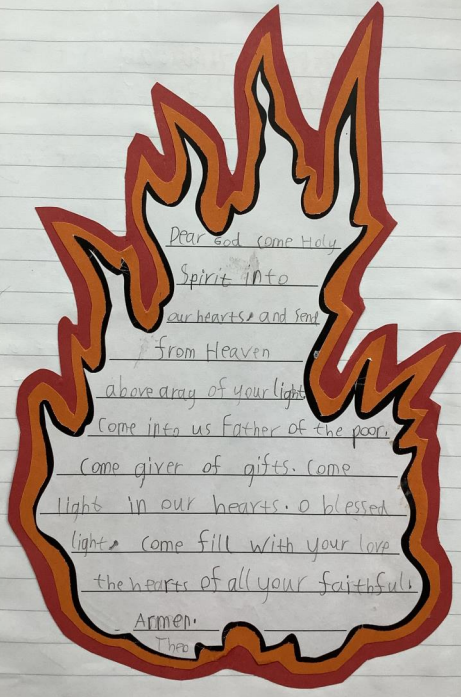 Dear God come Holy
Spirit into
our hearts, and send
from Heaven
above aray of your light
Come into us Father of the poor.
Come giver of gifts. Come
light in our hearts. O blessed
light, come fill with your love
the hearts of all your faithful.
Armen.
Theo